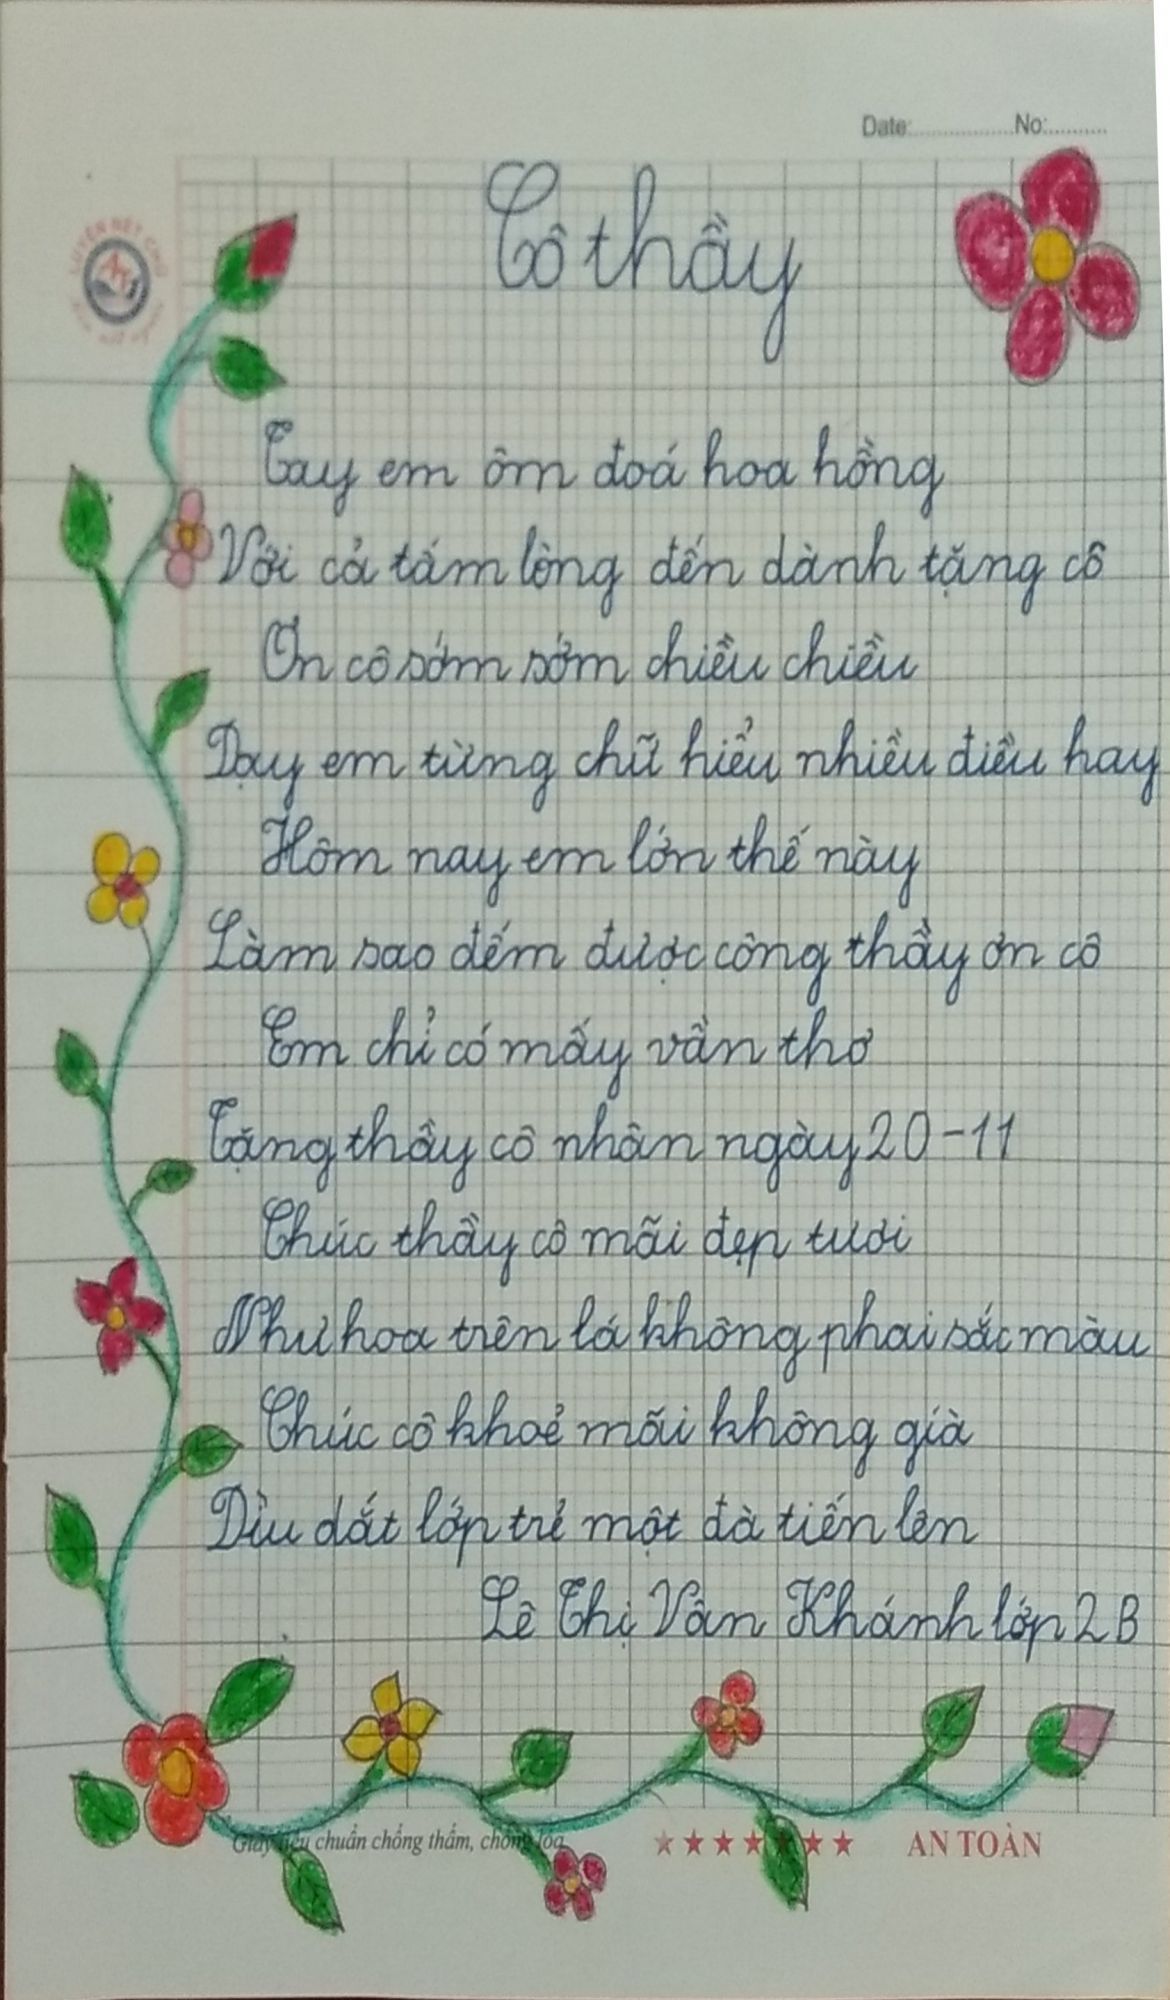 Date:................No:..........
Cô thầy
LUYỆN NÉT CHỮ
Tay em ôm đoá hoa hồng
Với cả tấm lòng đến dành tặng cô
Ơn cô sớm sớm chiều chiều
Dạy em từng chữ hiểu nhiều điều hay
Hôm nay em lớn thế này
Làm sao đếm được công thầy ơn cô
Em chỉ có mấy vần thơ
Tặng thầy cô nhân ngày 20-11
Chúc thầy cô mãi đẹp tươi
Như hoa trên lá không phai sắc màu
Chúc cô khoẻ mãi không già
Dìu dắt lớp trẻ một đà tiến lên
Lê Thị Vân Khánh lớp 2B
Giấy tiêu chuẩn chống thấm, chống loá ★★★★★★★ AN TOÀN